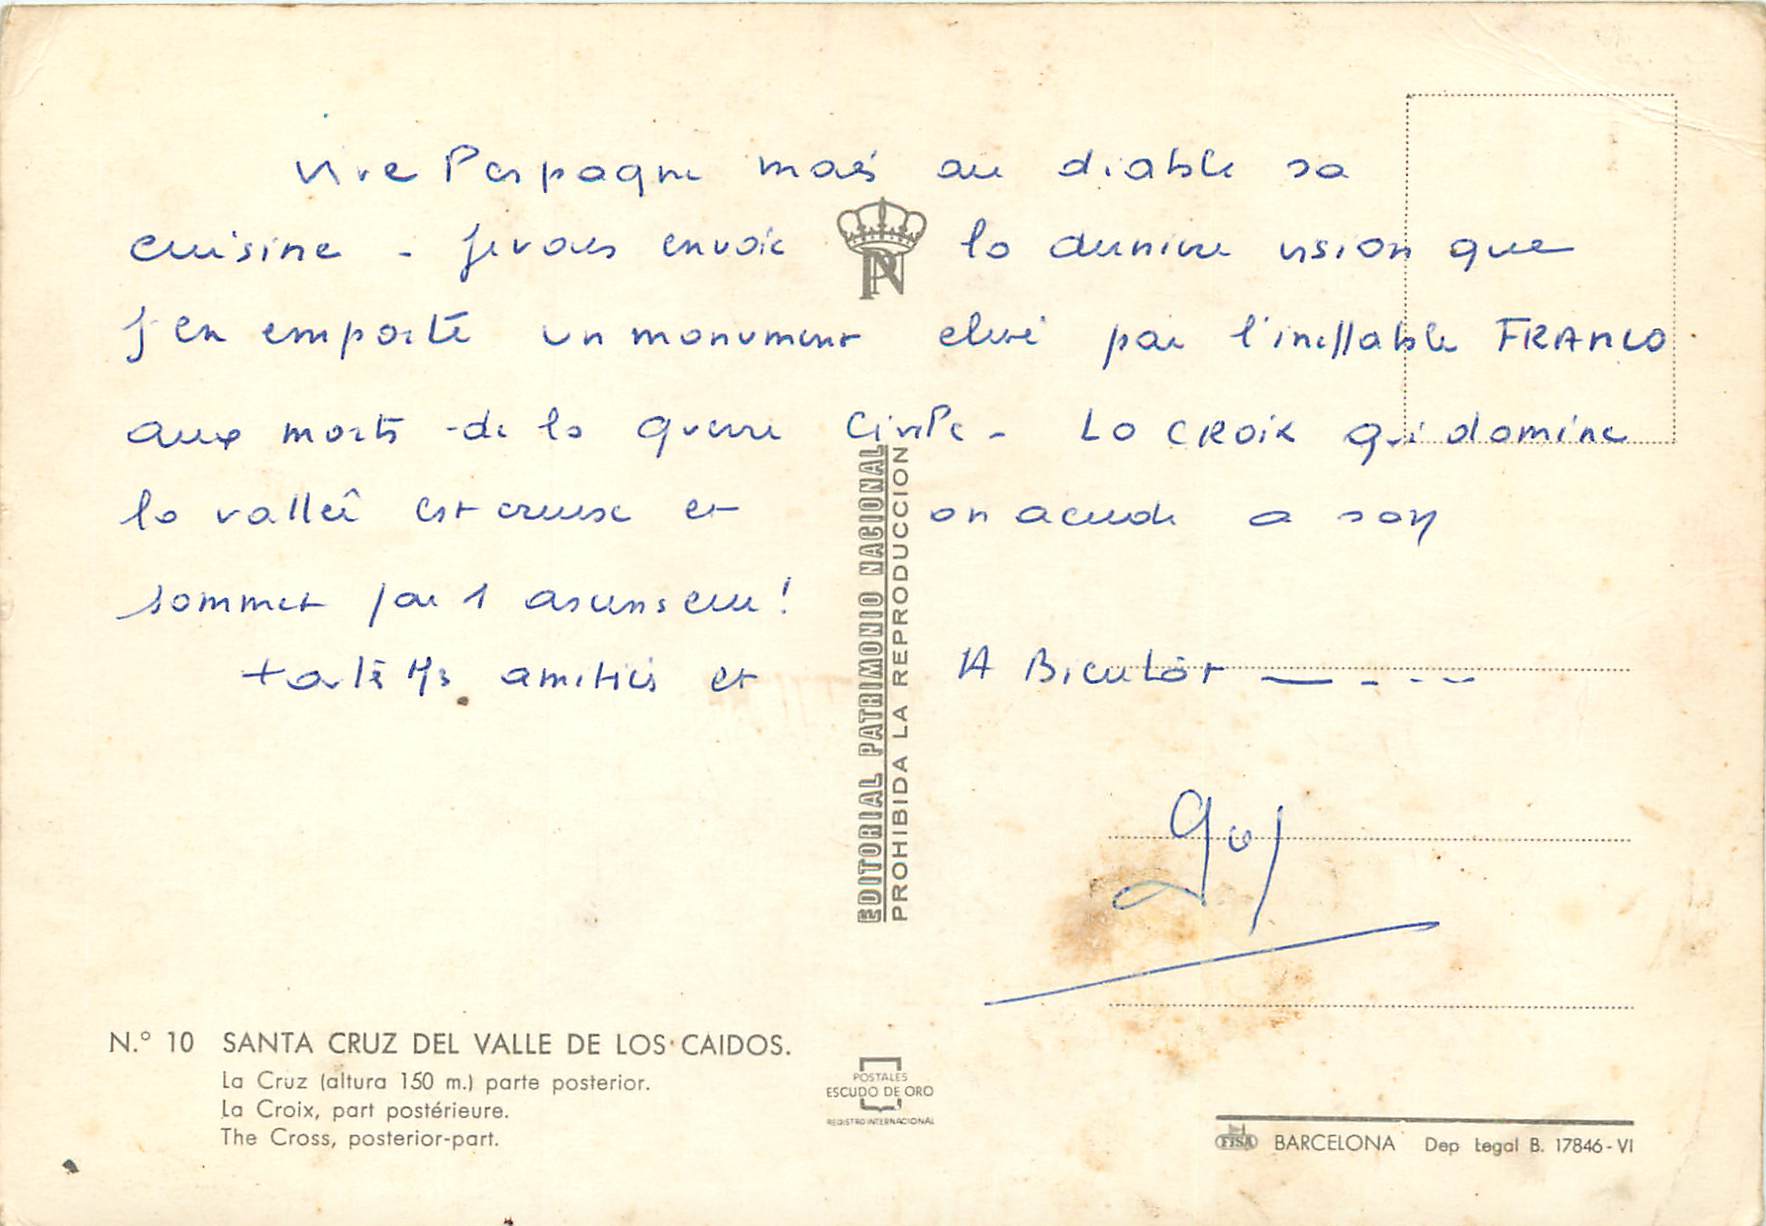 Vive l'Espagne mais au diable sa
cuisine - Je vous envoie la derniere vision que
j'en emporte un monument elevé par l'ineffable FRANCO
aux morts de la guerre Civile - La CROIX qui domine
la vallée est creuse et on accede a son
sommet par 1 ascenseur !
amitiés et A Bientôt
N.° 10 SANTA CRUZ DEL VALLE DE LOS CAIDOS.
La Cruz (altura 150 m.) parte posterior.
La Croix, part postérieure.
The Cross, posterior-part.
EDITORIAL PATRIMONIO NACIONAL
PROHIBIDA LA REPRODUCCION
POSTALES
ESCUDO DE ORO
REGISTRO INTERNACIONAL
FISA BARCELONA Dep Legal B. 17846-VI